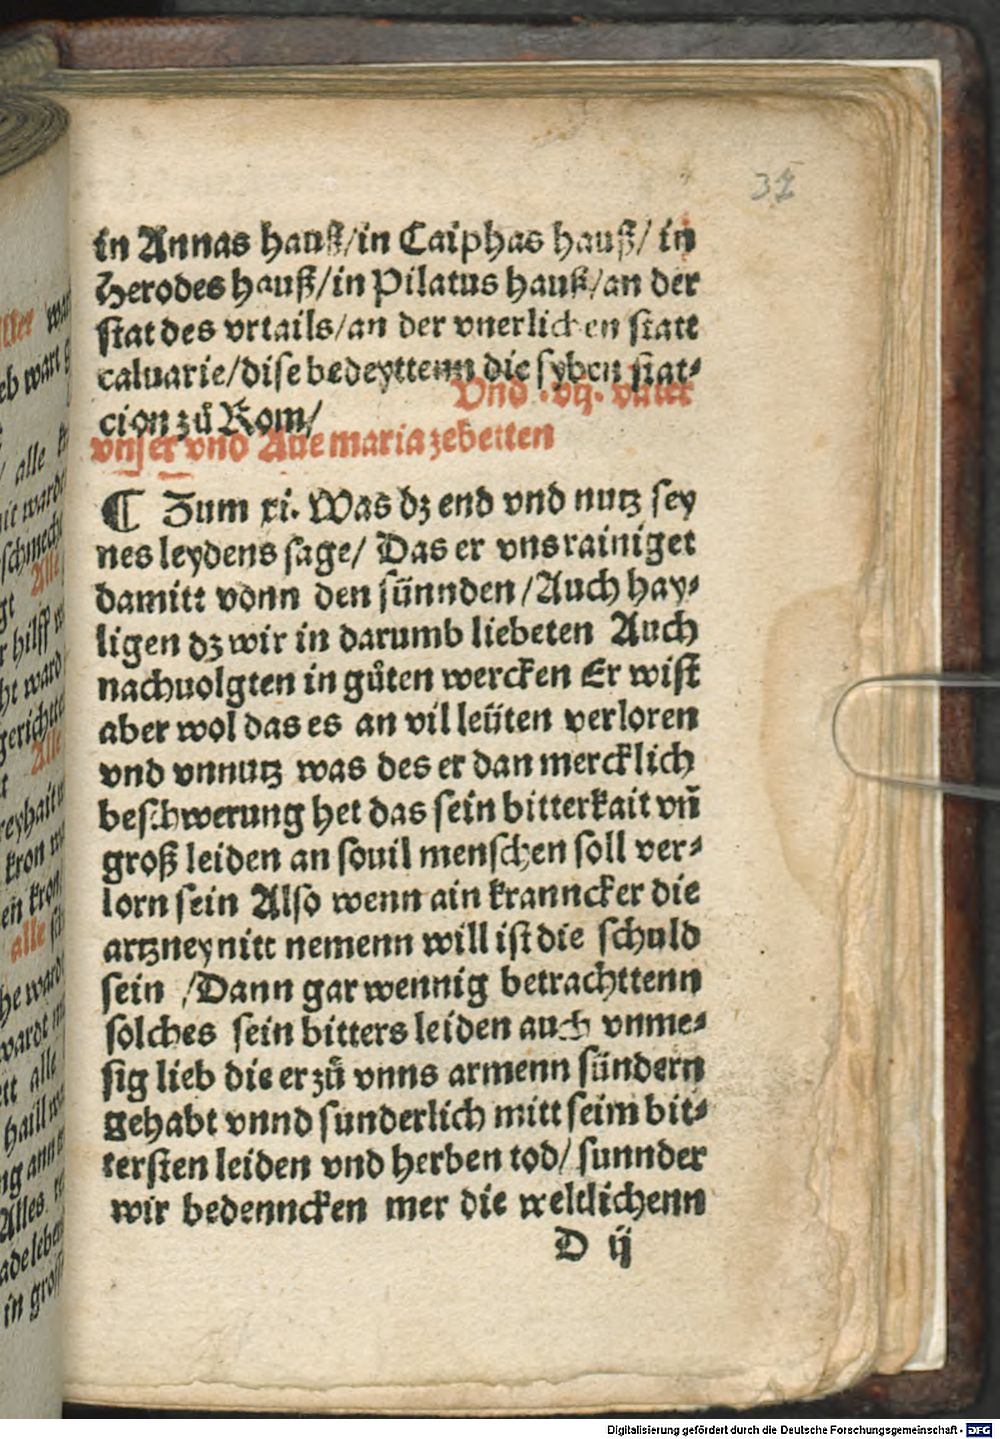 32
in Annas hauß/in Caiphas hauß/ in
Herodes hauß/in Pilatus hauß/an der
stat des vrtails/an der vnerlichen statt
caluarie/dise bedeyttenn die syben stat⸗
cion zů Rom/
Vnd .vij. vatter
vnser vnd Aue maria zebetten
¶ Zum xi. Was dz end vnd nutz sey
nes leydens sage/ Das er vns rainiget
damitt vonn den sünnden /Auch hay⸗
ligen dz wir in darumb liebeten Auch
nachuolgten in gůten wercken Er wist
aber wol das es an vil leüten verloren
vnd vnnutz was des er dan mercklich
beschwerung het das sein bitterkait vñ
groß leiden an souil menschen soll ver⸗
lorn sein Also wenn ain kranncker die
artzney nitt nemenn will ist die schuld
sein /Dann gar wennig betrachttenn
solches sein bitters leiden auch vnme⸗
sig lieb die er zů vnns armenn sündern
gehabt vnnd sunderlich mitt seim bit⸗
tersten leiden vnd herben tod/ sunnder
wir bedenncken mer die weltlichenn
D ij
Digitalisierung gefördert durch die Deutsche Forschungsgemeinschaft - DFG